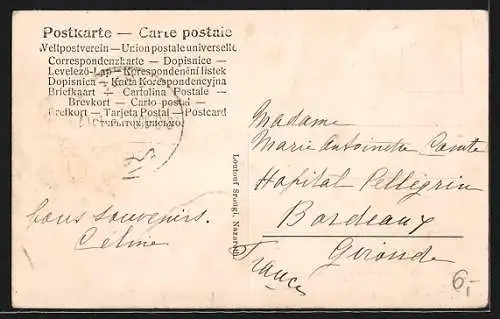 Postkarte — Carte postale
Weltpostverein — Union postale universelle
Correspondenzkarte — Dopisnice —
Levelező-Lap — Korespondenční lístek
Dopisnica — Karta Korespondencyjna
Briefkaart — Cartolina Postale —
Brevkort — Carto postal —
Brefkort — Tarjeta Postal — Postcard
Madame
Marie Antoinette Comte
Hopital Pellegrin
Bordeaux
Gironde
France
bons souvenirs.
Céline
Loutouf Srougi, Nazareth
6,-